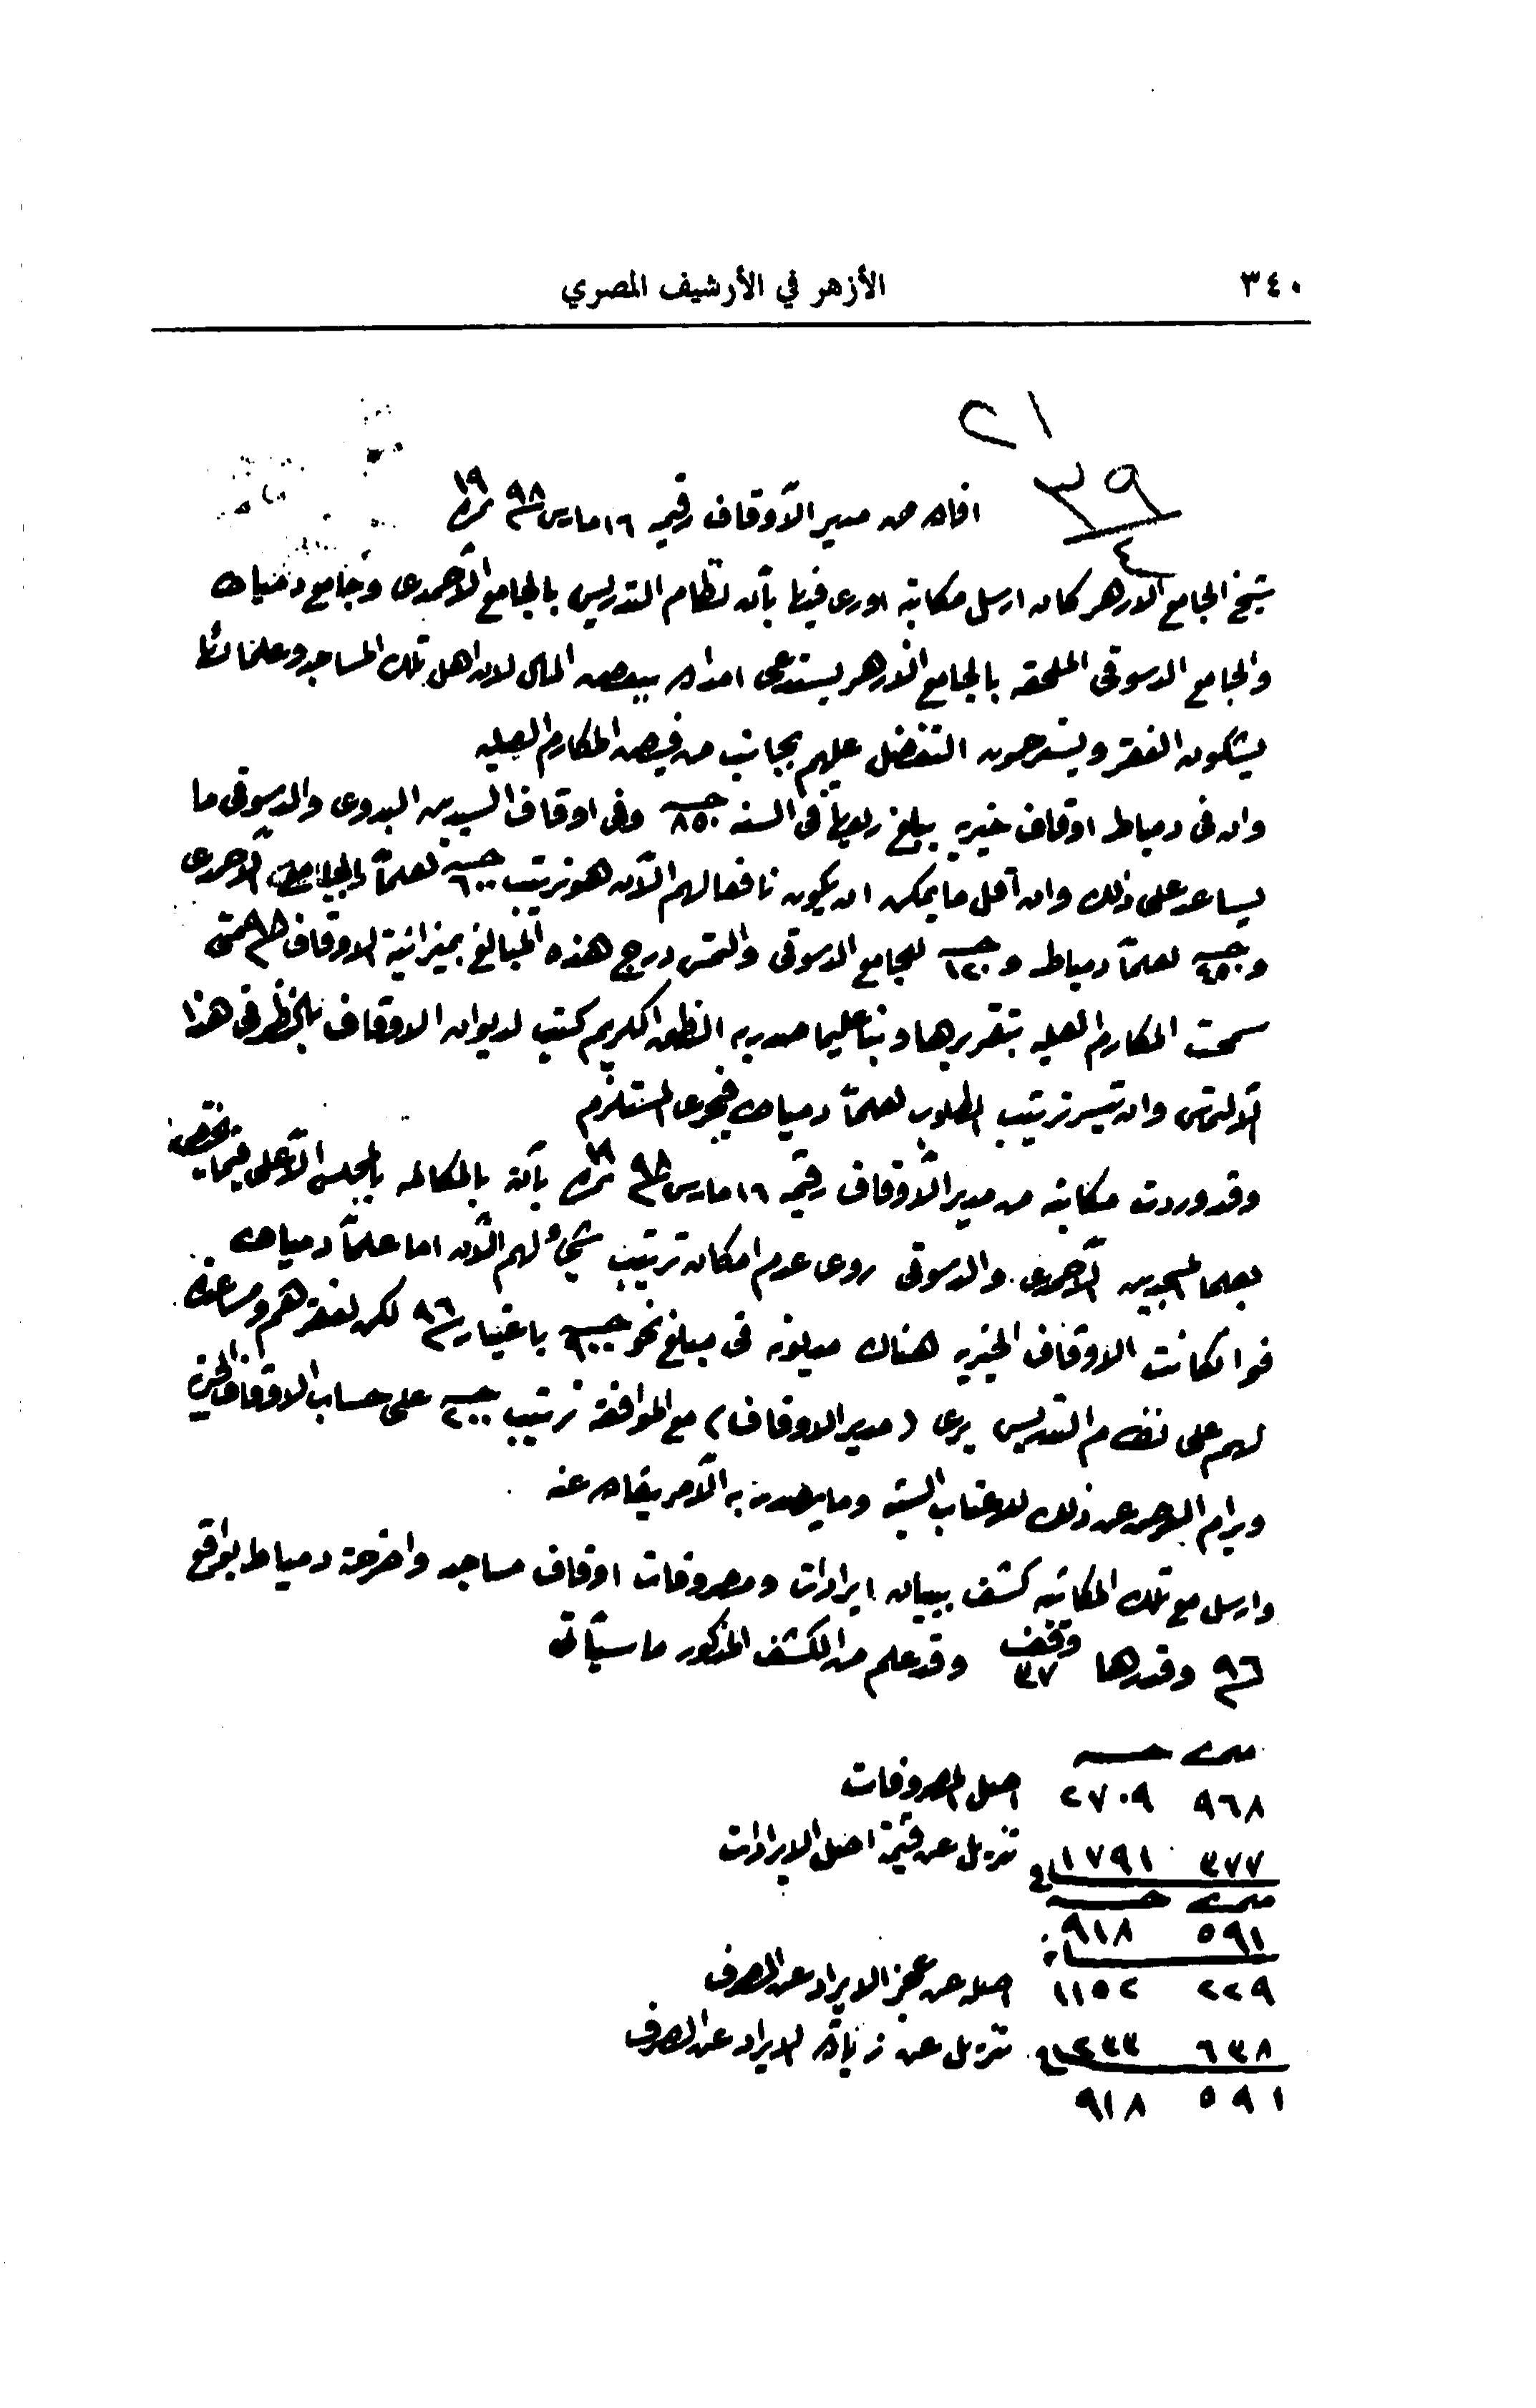 ٣٤٠ الأزهر في الأرشيف المصري
٢١
٣٩
٤
افاده من مدير الأوقاف رقيمه ١٦ مارس ٩٨ نمرة ١٩
شيخ الجامع الازهر كان ارسل مكاتبه اورى فيها بأن نظام التدريس بالجامع الأحمدى وجامع دمياط
والجامع الدسوقى الملحقه بالجامع الازهر يستدعى امداده ببعض المال لان اهل تلك المساجد وعلمائها
يشكون الفقر ويسترحمون التفضل عليهم بجانب من فيض المكارم العليه
وان فى دمياط اوقاف خيريه يبلغ ريعها فى السنه جنيه ٨٥٠ وفى اوقاف السيدين البدوى والدسوقى ما
يساعد على ذلك وان أقل ما يمكن ان يكون نافعا لهم الآن هو ترتيب جنيه ٦٠٠ لعلمآ الجامع الأحمدى
و جنيه لعلمآ دمياط و جنيه ١٢٠ للجامع الدسوقى والتمس درج هذه المبالغ بميزانية الاوقاف ٩٨ متى
سمحت المكارم العليه بتقريرها وبنا عليما صدر به النطق الكريم كتب لديوان الاوقاف بالنظر فى هذا
الالتماس وان تيسر ترتيب المطلوب لعلمآ دمياط فيجرى المستلزم
وقد وردت مكاتبه من مدير الأوقاف رقيمه ١٦ مارس ٩٨ نمرة ١٩ بأنه بالمكالمه بالمجلس الأعلى فيما يختص
بعلما المسجدين الأحمدى والدسوقى روى عدم امكان ترتيب شئ لهم الآن اما علمآ دمياط
فوان كانت الاوقاف الخيريه هناك مديونه فى مبلغ نحو جنيه ٩٠٠ باعتبار ٩٦ لكن لفقرهم ومساعدة
لهم على نظام التدريس يرى (مدير الاوقاف) مع الموافقة ترتيب جنيه ٢٠٠ على حساب الاوقاف الخيريه
ويرام العرض عن ذلك للاعتاب السنيه وما يصدر به الأمر يفاد عنه
وارسل مع تلك المكاتبه كشف ببيان ايرادات ومصروفات اوقاف مساجد واضرحة دمياط بواقع
٩٦ وقدرها وقف ٣٧ وقد علم من الكشف المذكور ما سيأتى
مليم جنيه
٩٦٨ ٢٧٠٩ اصل المصروفات
٣٧٧ ١٧٩١ تنزيل عن قيمة اصل الايرادات
مليم جنيه
٥٩١ ٩١٨
٢٢٩ ١١٥٢ اصله عن عجز الايراد عن المصرف
٦٣٨ ٢٣٣ تنزيل عن زيادة الايراد عن المصرف
٥٩١ ٩١٨